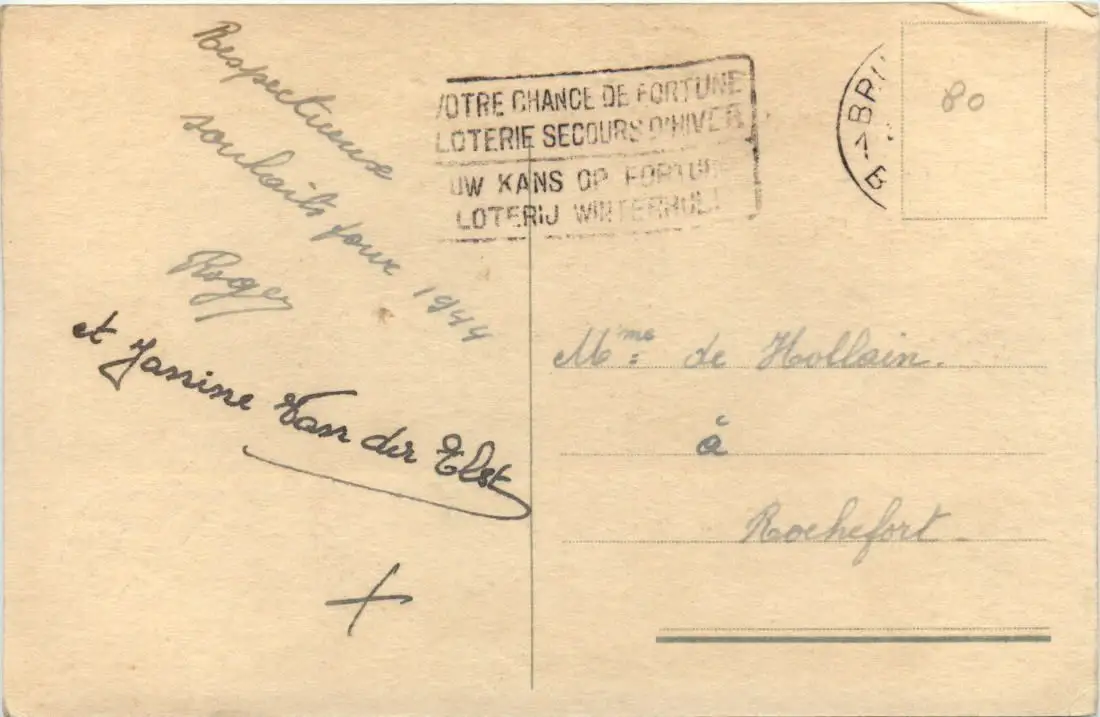 Respectueux
souhaits pour 1944
Roger
et Janine Van der Elst
VOTRE CHANCE DE FORTUNE
LOTERIE SECOURS D'HIVER
UW KANS OP FORTUIN
LOTERIJ WINTERHULP
BRU
B
80
Mme de Hollain.
à
Rochefort